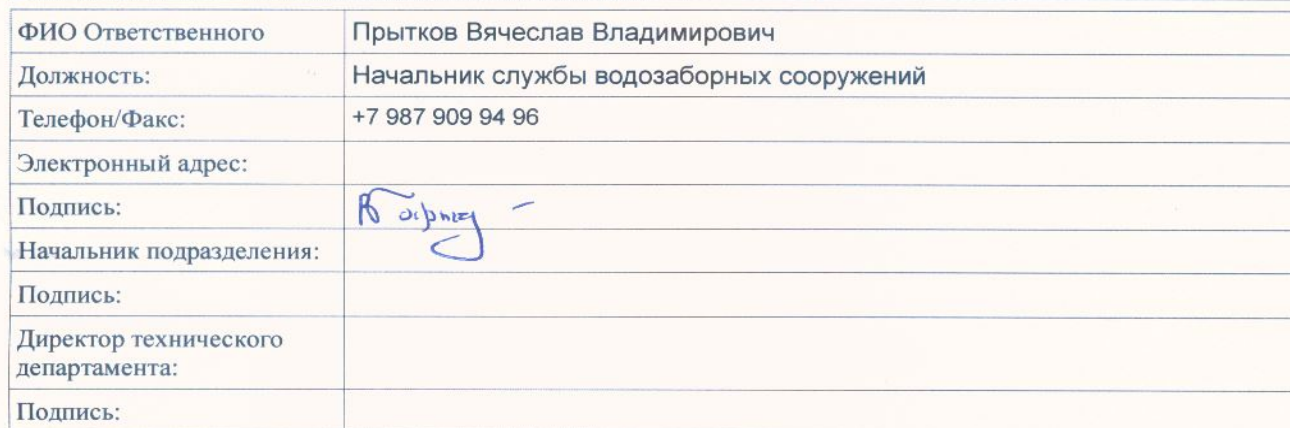 ФИО Ответственного Прытков Вячеслав Владимирович
Должность: Начальник службы водозаборных сооружений
Телефон/Факс: +7 987 909 94 96
Электронный адрес:
Подпись:
Начальник подразделения:
Подпись:
Директор технического
департамента:
Подпись: